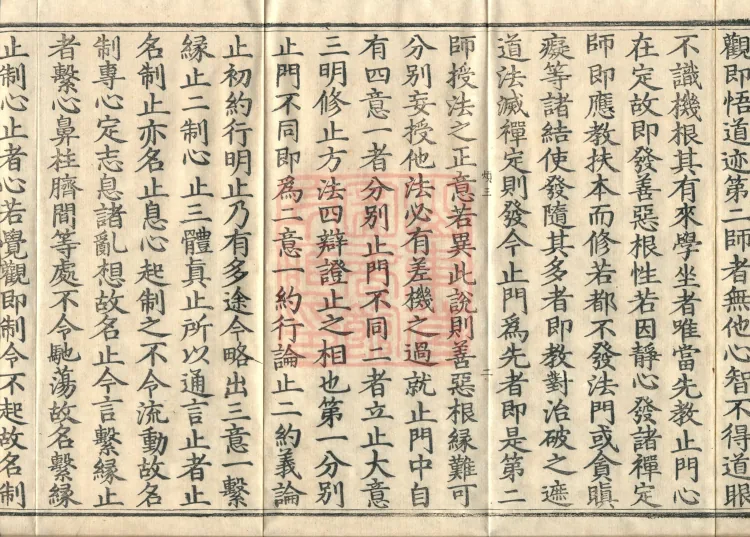 觀即悟道迹第二師者無他心智不得道眼
不識機根其有來學坐者唯當先教止門心
在定故即發善惡根性若因靜心發諸禪定
師即應教扶本而修若都不發法門或貪瞋
癡等諸結使發隨其多者即教對治破之遮
道法滅禪定則發今止門為先者即是第二
師授法之正意若異此說則善惡根緣難可
分別妄授他法必有差機之過就止門中自
有四意一者分別止門不同二者立止大意
三明修止方法四辯證止之相也第一分別
止門不同即為二意一約行論止二約義論
止初約行明止乃有多途今略出三意一繫
緣止二制心止三體真止所以通言止者止
名制止亦名止息心起制之不令流動故名
制專心定志息諸亂想故名止今言繫緣止
者繫心鼻柱臍間等處不令馳蕩故名繫緣
止制心止者心若覺觀即制令不起故名制